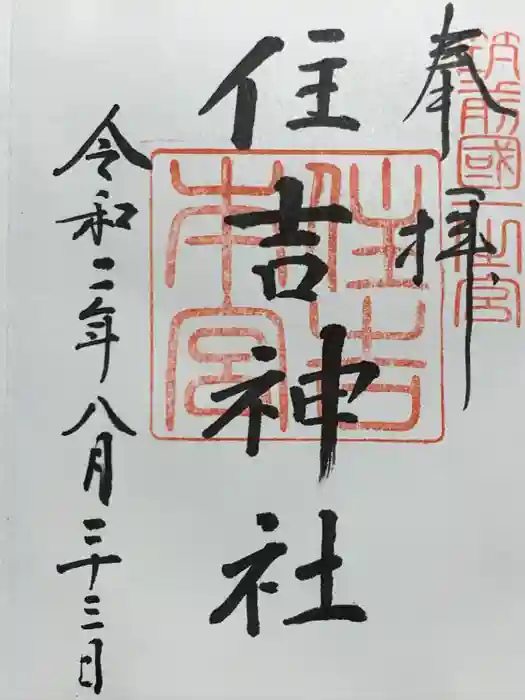 筑前國一之宮
奉拝
住吉神社
住吉本宮
令和二年八月二十三日